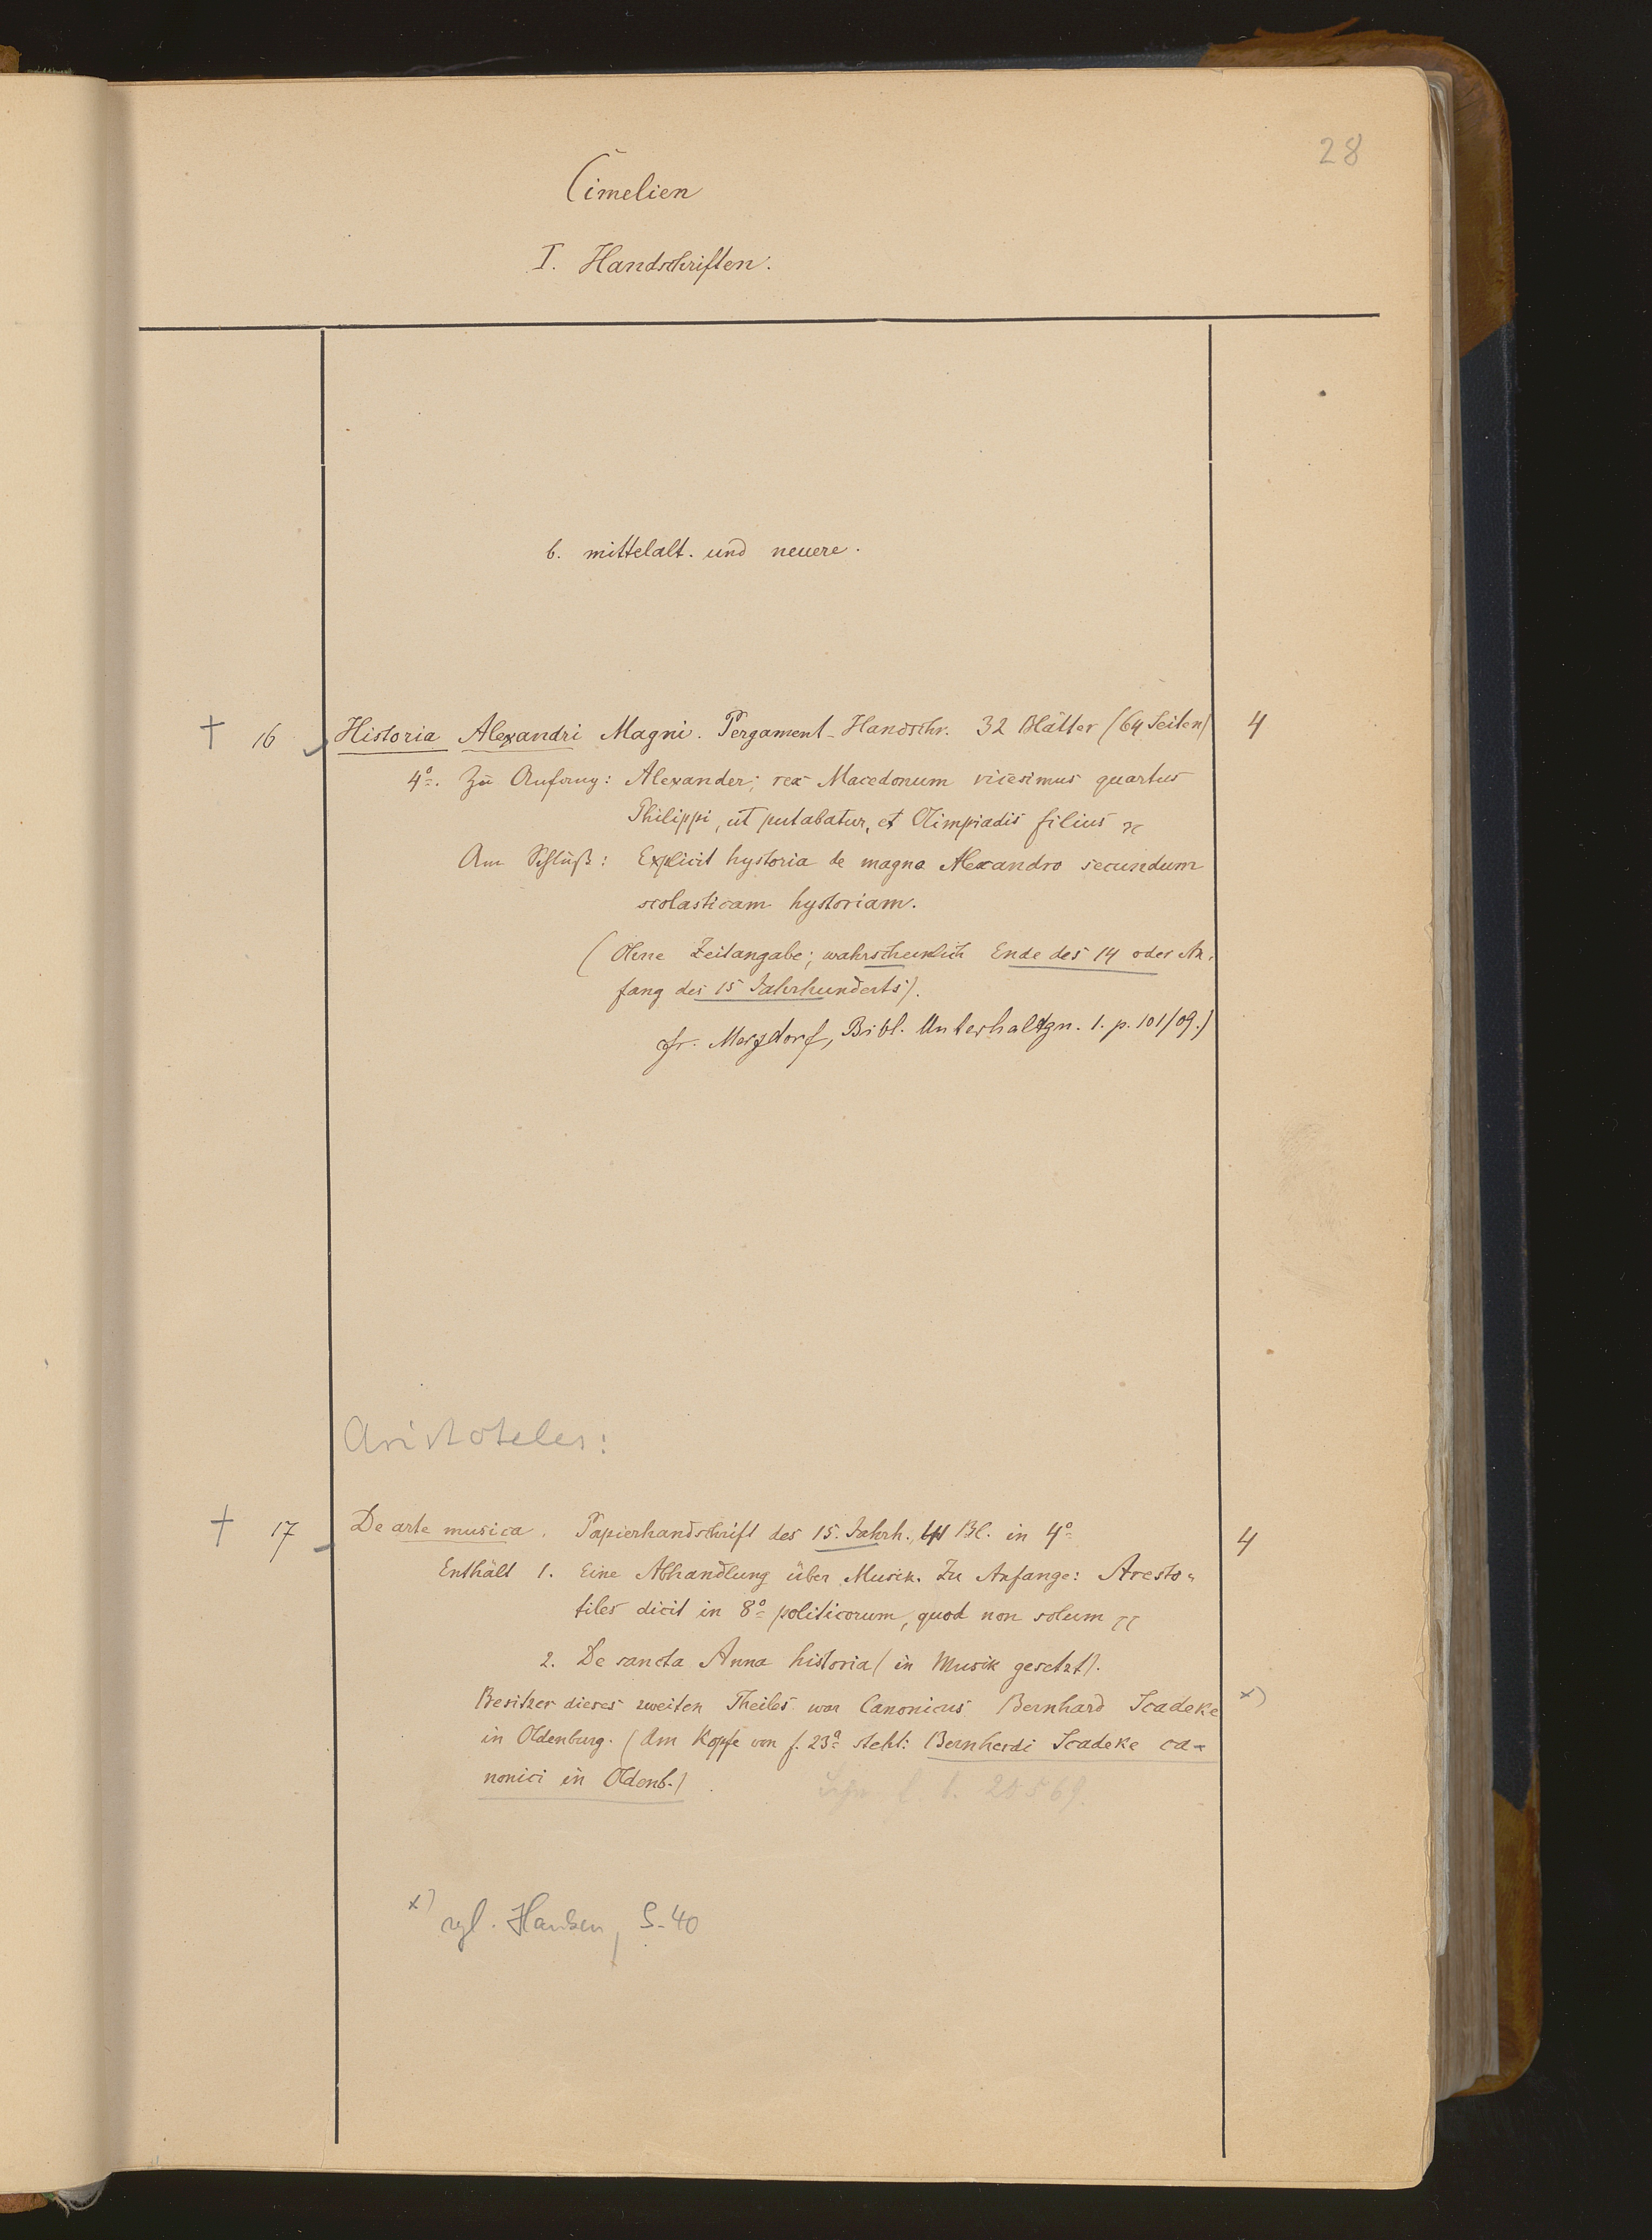 28
Cimelien
I. Handschriften.
b. mittelalt. und neuere.
† 16 Historia Alexandri Magni. Pergament-Handschr. 32 Blätter (64 Seiten) 4
4º. Zu Anfang: Alexander, rex Macedonum vicesimus quartus
Philippi, ut putabatur, et Olimpiadis filius
Am Schluß: Explicit hystoria de magno Alexandro secundum
scolasticam hystoriam.
(Ohne Zeitangabe; wahrscheinlich Ende des 14 oder An-
fang des 15 Jahrhunderts).
cfr. Merzdorf, Bibl. Unterhaltgn. 1. p. 101/09.)
Aristoteles:
† 17 De arte musica. Papierhandschrift des 15. Jahrh., Bl. in 4º 4
Enthält 1. Eine Abhandlung über Musik. Zu Anfange: Aresto-
tiles dicit in 8º politicorum, quod non solum
2. De sancta Anna historia (in Musik gesetzt).
Besitzer dieses zweiten Theiles war Canonicus Bernhard Scadeke x)
in Oldenburg. (Am Kopfe von f. 23ª steht: Bernherdi Scadeke ca-
nonici in Oldenb.)
20569.
x) vgl. S. 40